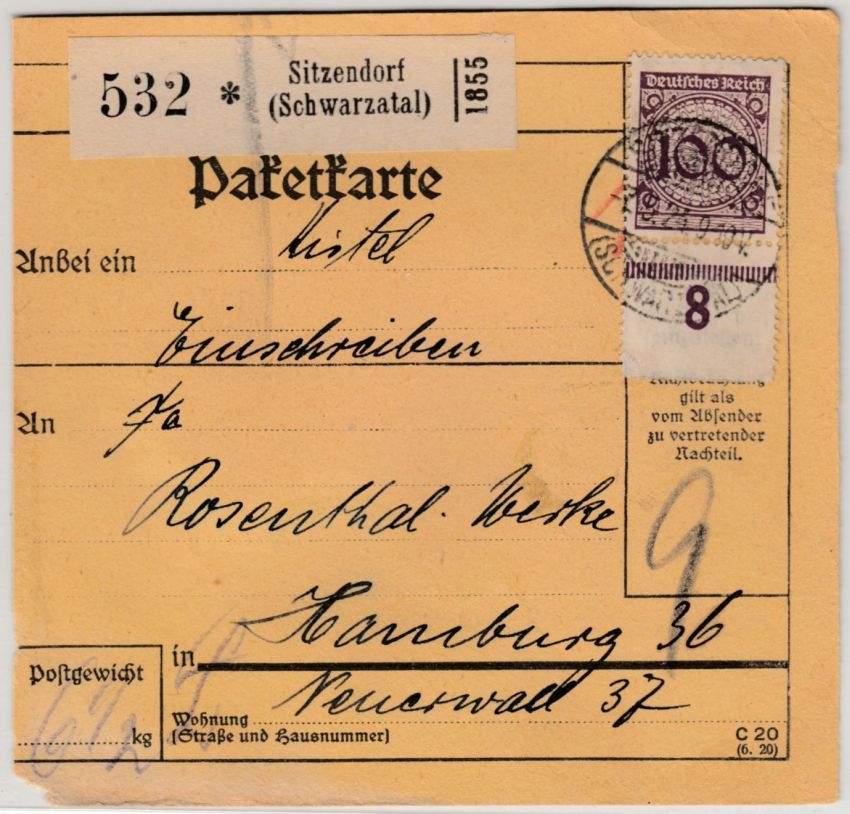 532 * Sitzendorf
(Schwarzatal) 1855
Deutsches Reich
100
8
Paketkarte
Anbei ein Kistel
Einschreiben
An Fa
Rosenthal-Werke
gilt als
vom Absender
zu vertretender
Nachteil.
9
in Hamburg 36
Neuerwall 37
Wohnung
(Straße und Hausnummer)
Postgewicht
6 1/2 kg
C 20
(6. 20)